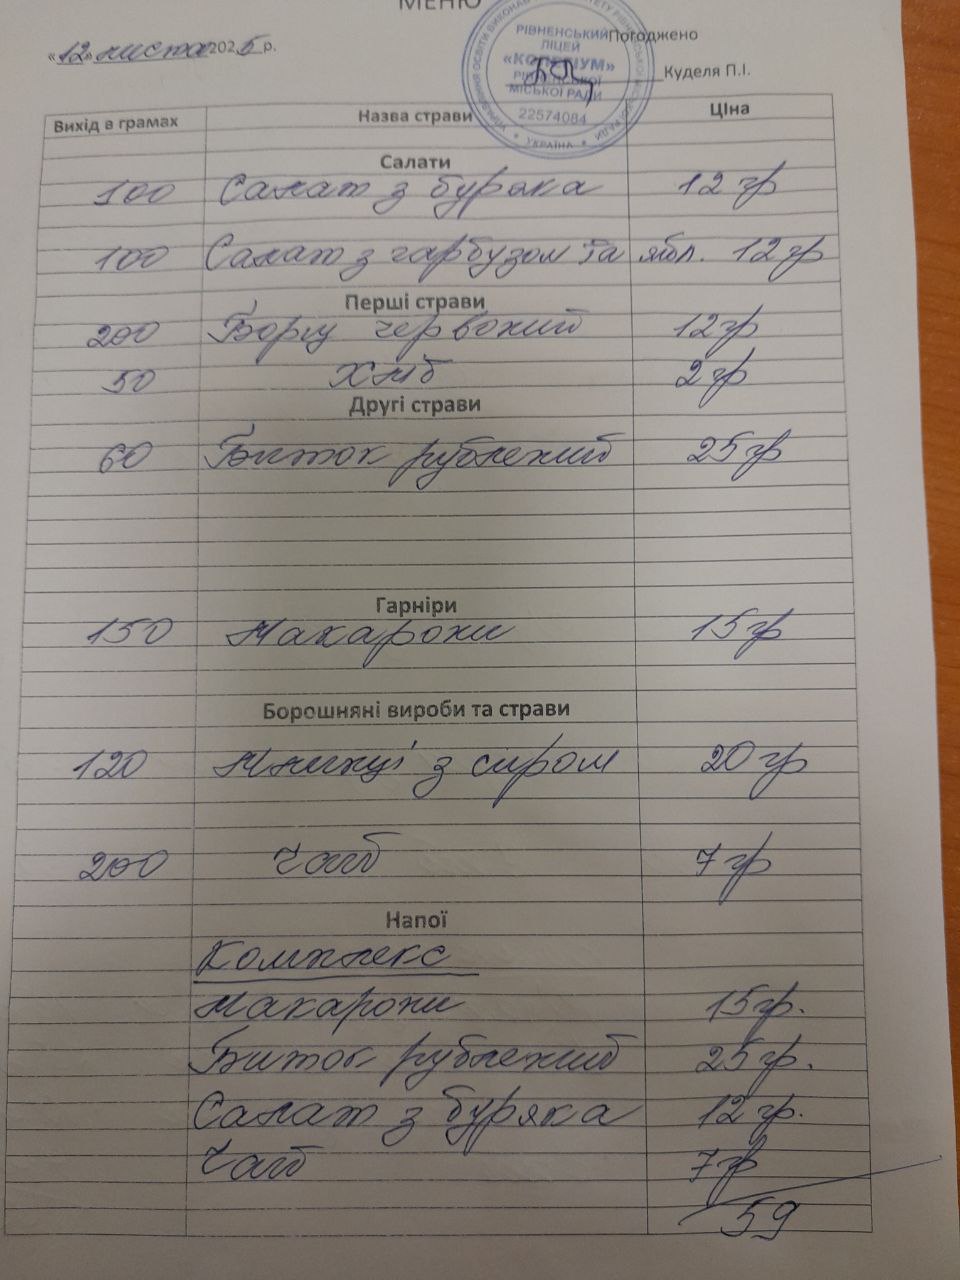 МЕНЮ
«12» листа 2025 р.
Погоджено
РІВНЕНСЬКИЙ
ЛІЦЕЙ
«КОЛЕГІУМ»
РІВНЕНСЬКОЇ
МІСЬКОЇ РАДИ
22574084
УКРАЇНА
Куделя П.І.
Вихід в грамах Назва страви Ціна
Салати
100 Салат з буряка 12 гр
100 Салат з гарбузом та ябл. 12 гр
Перші страви
200 Борщ червоний 12 гр
50 Хліб 2 гр
Другі страви
60 Биток рублений 25 гр
Гарніри
150 Макарони 15 гр
Борошняні вироби та страви
120 Млинці з сиром 20 гр
200 Чай 7 гр
Напої
Комплекс
Макарони 15 гр.
Биток рублений 25 гр.
Салат з буряка 12 гр.
Чай 7 гр
59